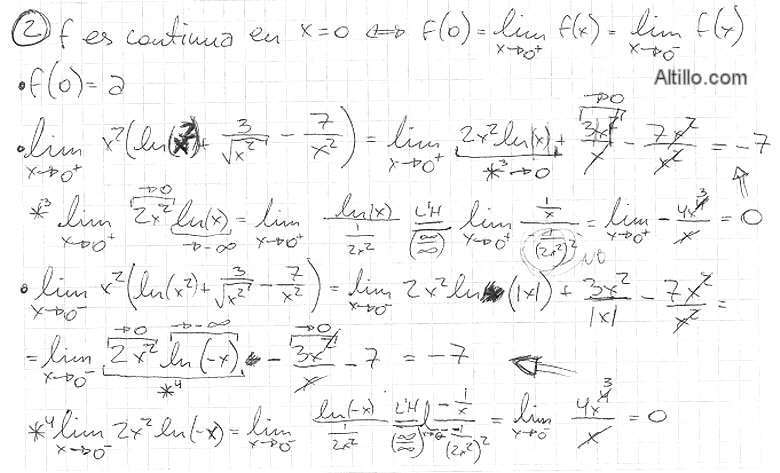 ② f es continua en x=0 ⟺ f(0) = lim x→0⁺ f(x) = lim x→0⁻ f(x)
Altillo.com
• f(0) = a
• lim x→0⁺ x²(ln(x²) + 3/√x² − 7/x²) = lim x→0⁺ 2x² ln(x) + 3x²/x − 7x²/x² = −7
→0
*³→0
*³ lim x→0⁺ 2x² ln(x) = lim x→0⁺ ln(x)/(1/2x²) L'H (∞/∞) = lim x→0⁺ (1/x)/(1/(2x²)²) = lim x→0⁺ − 4x⁴/x = 0
→0 →−∞ NO 3
• lim x→0⁻ x²(ln(x²) + 3/√x² − 7/x²) = lim x→0⁻ 2x² ln (|x|) + 3x²/|x| − 7x²/x² =
→0 →−∞ →0
= lim x→0⁻ 2x² ln(−x) − 3x²/x − 7 = −7 ⇐
*⁴
*⁴ lim x→0⁻ 2x² ln(−x) = lim x→0⁻ ln(−x)/(1/2x²) L'H (∞/∞) = lim x→0⁻ (−1/x)/(−1/(2x²)²) = lim x→0⁻ 4x⁴/x = 0
3